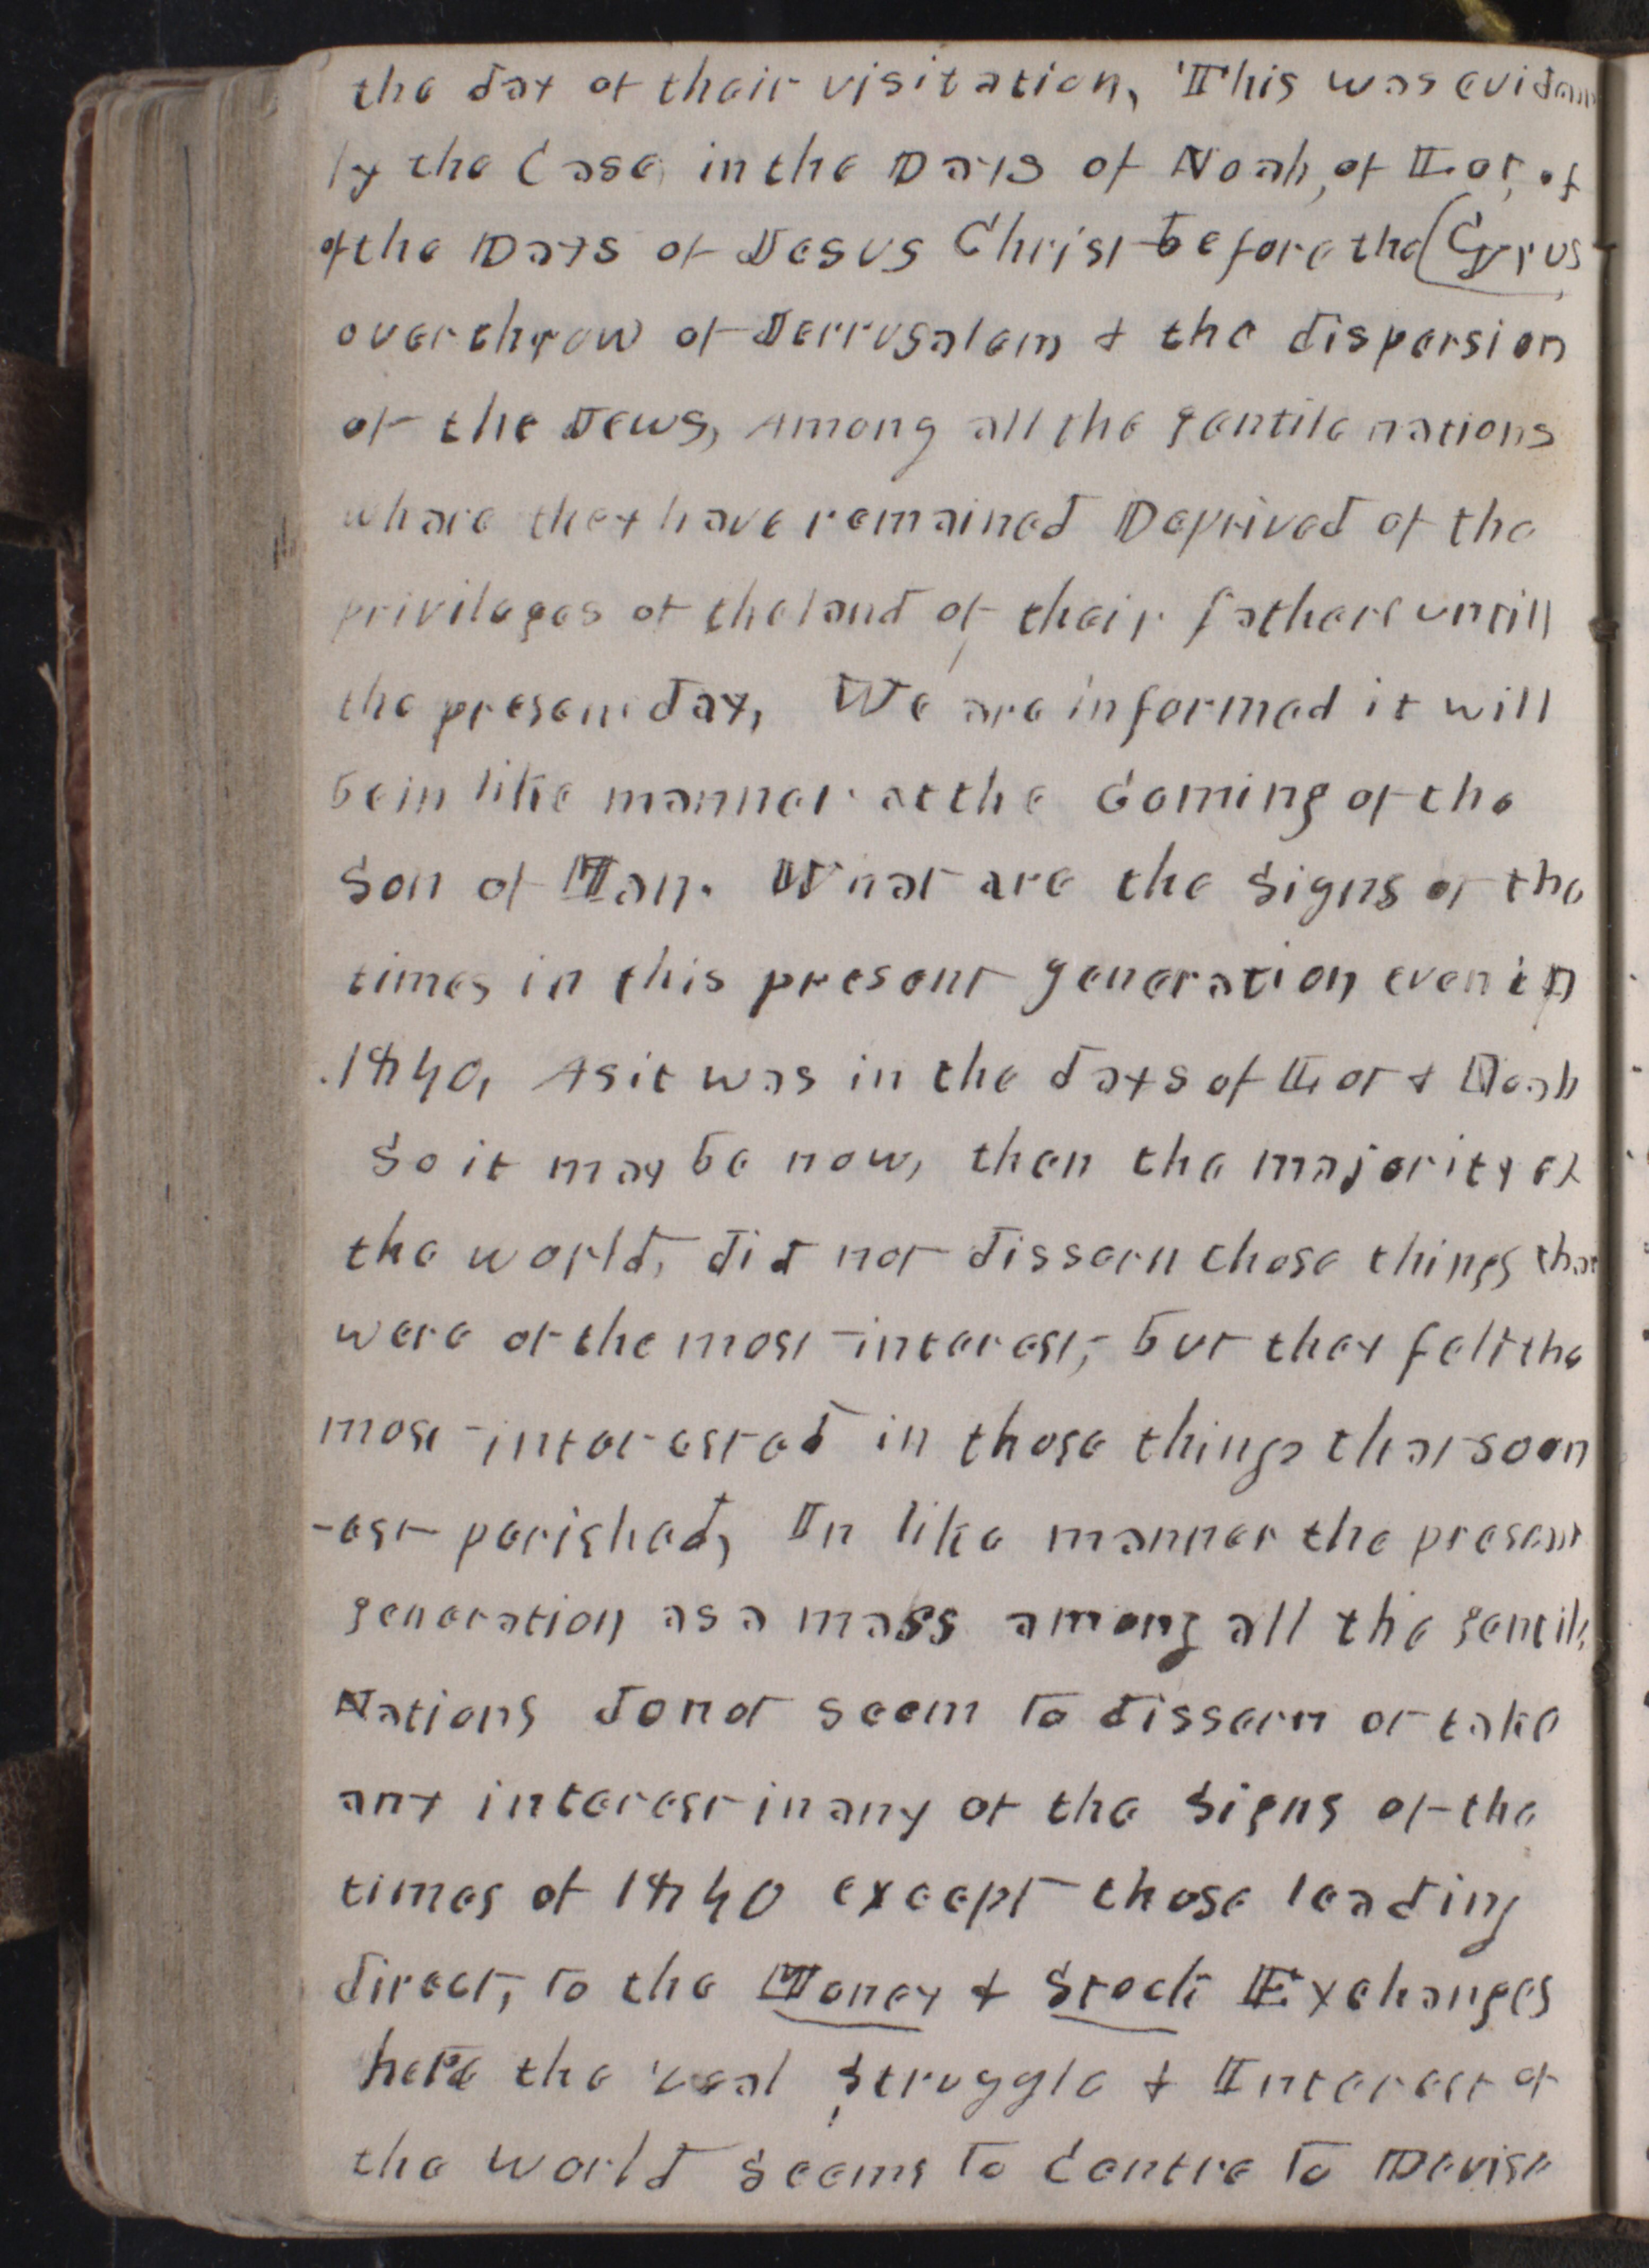 the day of their visitation, This was evident
ly the Case in the Days of Noah, of Lot, of
of the Days of Jesus Christ before the (Cyrus
overthrow of Jerrusalem & the dispersion
of the Jews, Among all the gentile nations
whare they have remained Deprived of the
privileges of the land of their fathers untill
the present day, We are informed it will
be in like manner at the Coming of the
Son of Man. What are the Signs of the
times in this present generation even in
1840, As it was in the days of Lot & Noah
So it may be now, then the majority of
the world, did not dissern those things that
were of the most interest, but they felt the
most interested in those things that soon
-est perished, In like manner the present
generation as a mass among all the gentile
Nations do not seem to dissern or take
any interest in any of the Signs of the
times of 1840 except those leading
direct, to the Money & Stock Exchanges
here the real Struggle & Interest of
the World Seems to Centre to Devise